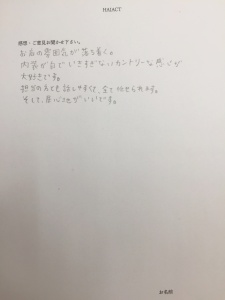 HAIACT
感想・ご意見お聞かせ下さい。
お店の雰囲気が落ち着く。
内装が白でいきすぎないカントリーな感じが
大好きです。
担当の方も話しやすくて、全て任せられます。
そして、居心地がいいです。
お名前